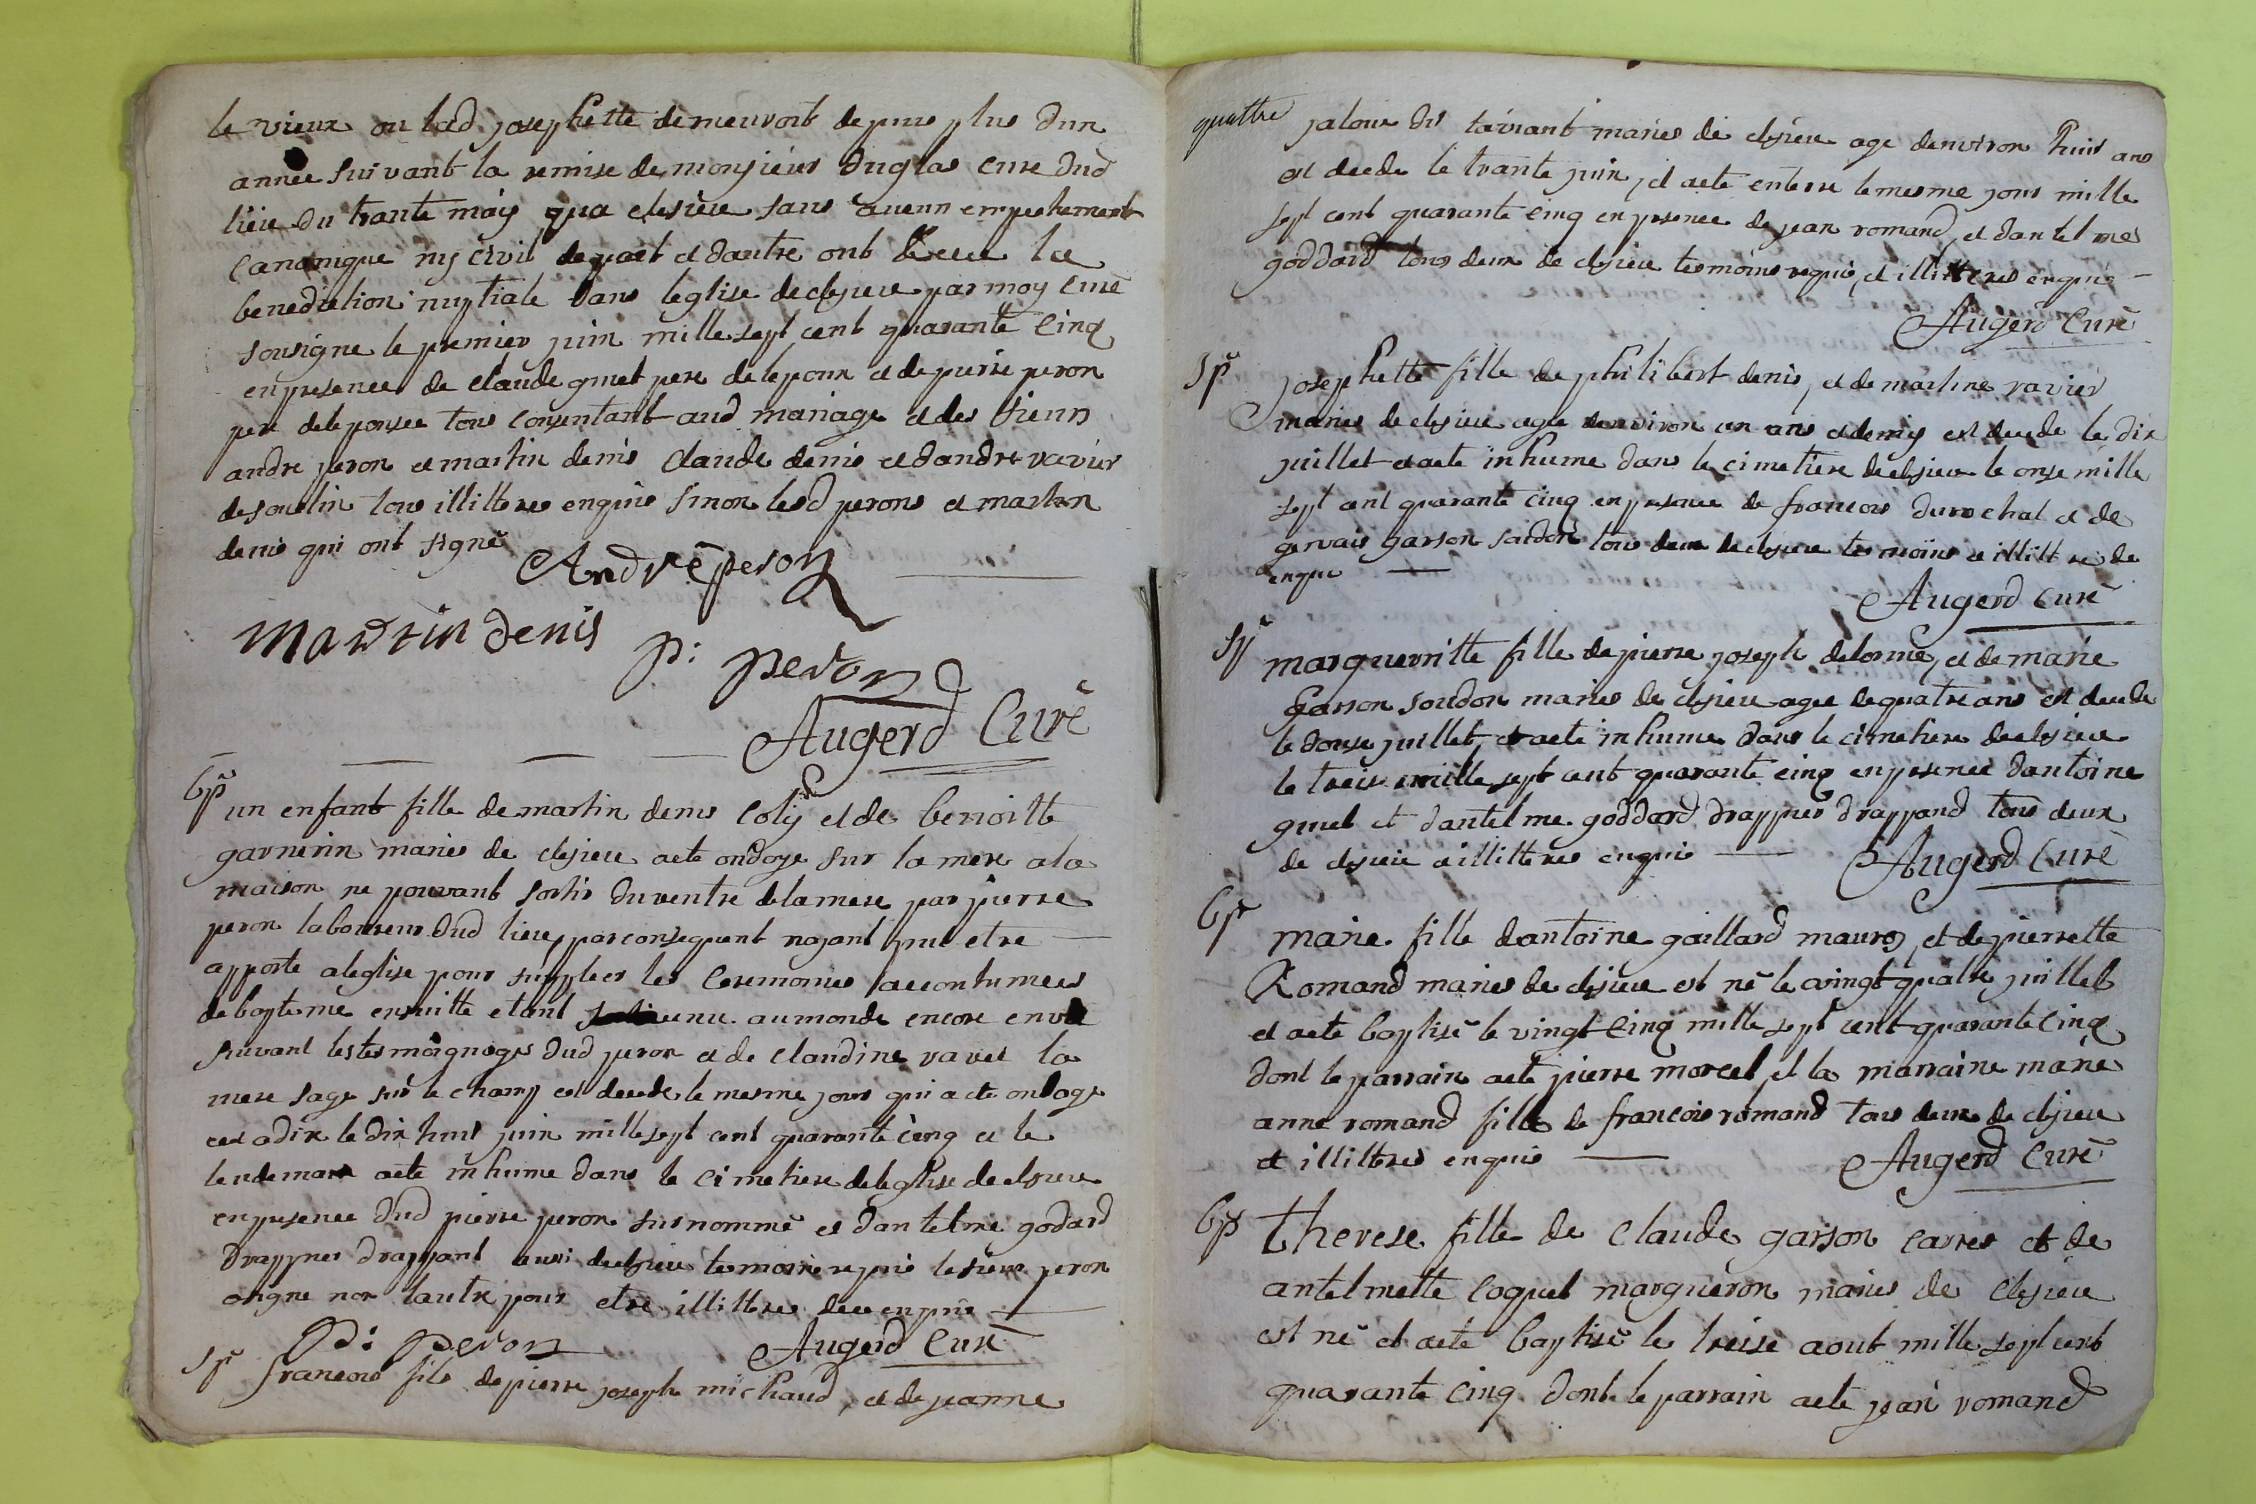 le vieux ou lad josephette demeuroit depuis plus dun
année suivant la remise de monsieur Duglas cure dud
lieu du trante may qua clesieu sans aucun empechement
canonique ny civil de part et dautre ont receu la
benediction nuptiale dans leglise de clesieu par moy curé
sousigne le premier juin mille sept cent quarante cinq
en presence de claude gmet pere de lepoux et de pierre peron
pere de leponsee tous consentant aud mariage et des sieurs
andre peron et martin denis claude denis et dandre ravier
de soudin tous illitteres enquis sinon lesd perons et martin
denis qui ont signé
Andrê peron
Martin Denis
p: peron
Augerd Curé
bp un enfant fille de martin denis coly et de benoitte
garnerin maries de clesieu aete ondoye sur la mere a la
maison ne pouvant sortir du ventre de la mere par pierre
peron laboureur dud lieu, par consequent nayant peut etre
apporte a leglise pour suppleer les ceremonies accoutumees
de bapteme ensuitte etant venu au monde encore en vie
suivant les tesmoignages dud peron et de claudine ravet la
mere sage sur le champ est decede le mesme jour qui a ete ondoye
cest a dire le dix huit juin mille sept cent quarante cinq et le
lendemain aete inhume dans le cimetiere de leglise de clesieu
en presence dud pierre peron surnommé et dantelme godard
drappier drappant aussi de clesieu temoins requis le sieur peron
asigne non lautre pour etre illittere de ce enquis
P: peron Augerd Curé
sp francois fils de pierre joseph michaud, et de jeanne
quattre jaloux dis taviant maries de clesieu age denviron huit ans
est decede le trante juin, et aete enterre le mesme jour mille
sept cent quarante cinq en presence de jean romand, et dantelme
goddard tous deux de clesieu tesmoins requis, et illitteres enquis
Augerd Curé
sp josephette fille de philibert denis, et de martine ravier
maries de clesieu agee denviron un ans et demy est decede le dix
juillet et aete inhume dans le cimetiere de clesieu le onse mille
sept cent quarante cinq en presence de francois durochat et de
gervais garson sardon tous deux de clesieu tesmoins et illitteres de
enquis
Augerd curé
sp marguerritte fille de pierre joseph delorme, et de marie
garson soudon maries de clesieu agee de quatre ans est decede
le douse juillet, et aete inhume dans le cimetiere de clesieu
le treise mille sept cent quarante cinq en presence dantoine
gmet et dantelme goddard drappier drappand tous deux
de clesieu et illitteres enquis Augerd Curé
bp marie fille dantoine gaillard mauroz, et de pierrette
Romand maries de clesieu est né le vingt quatre juillet
et aete baptisé le vingt cinq mille sept cent quarante cinq
dont le parrain aete pierre morcel, et la marraine marie
anne romand fille de francois romand tous deux de clesieu
et illitteres enquis Augerd Curé
bp therese fille de claude garson carres et de
antelmette coquet margueron maries de clesieu
est né et aete baptisé le treise aout mille sept cent
quarante cinq dont le parrain aete jean romand